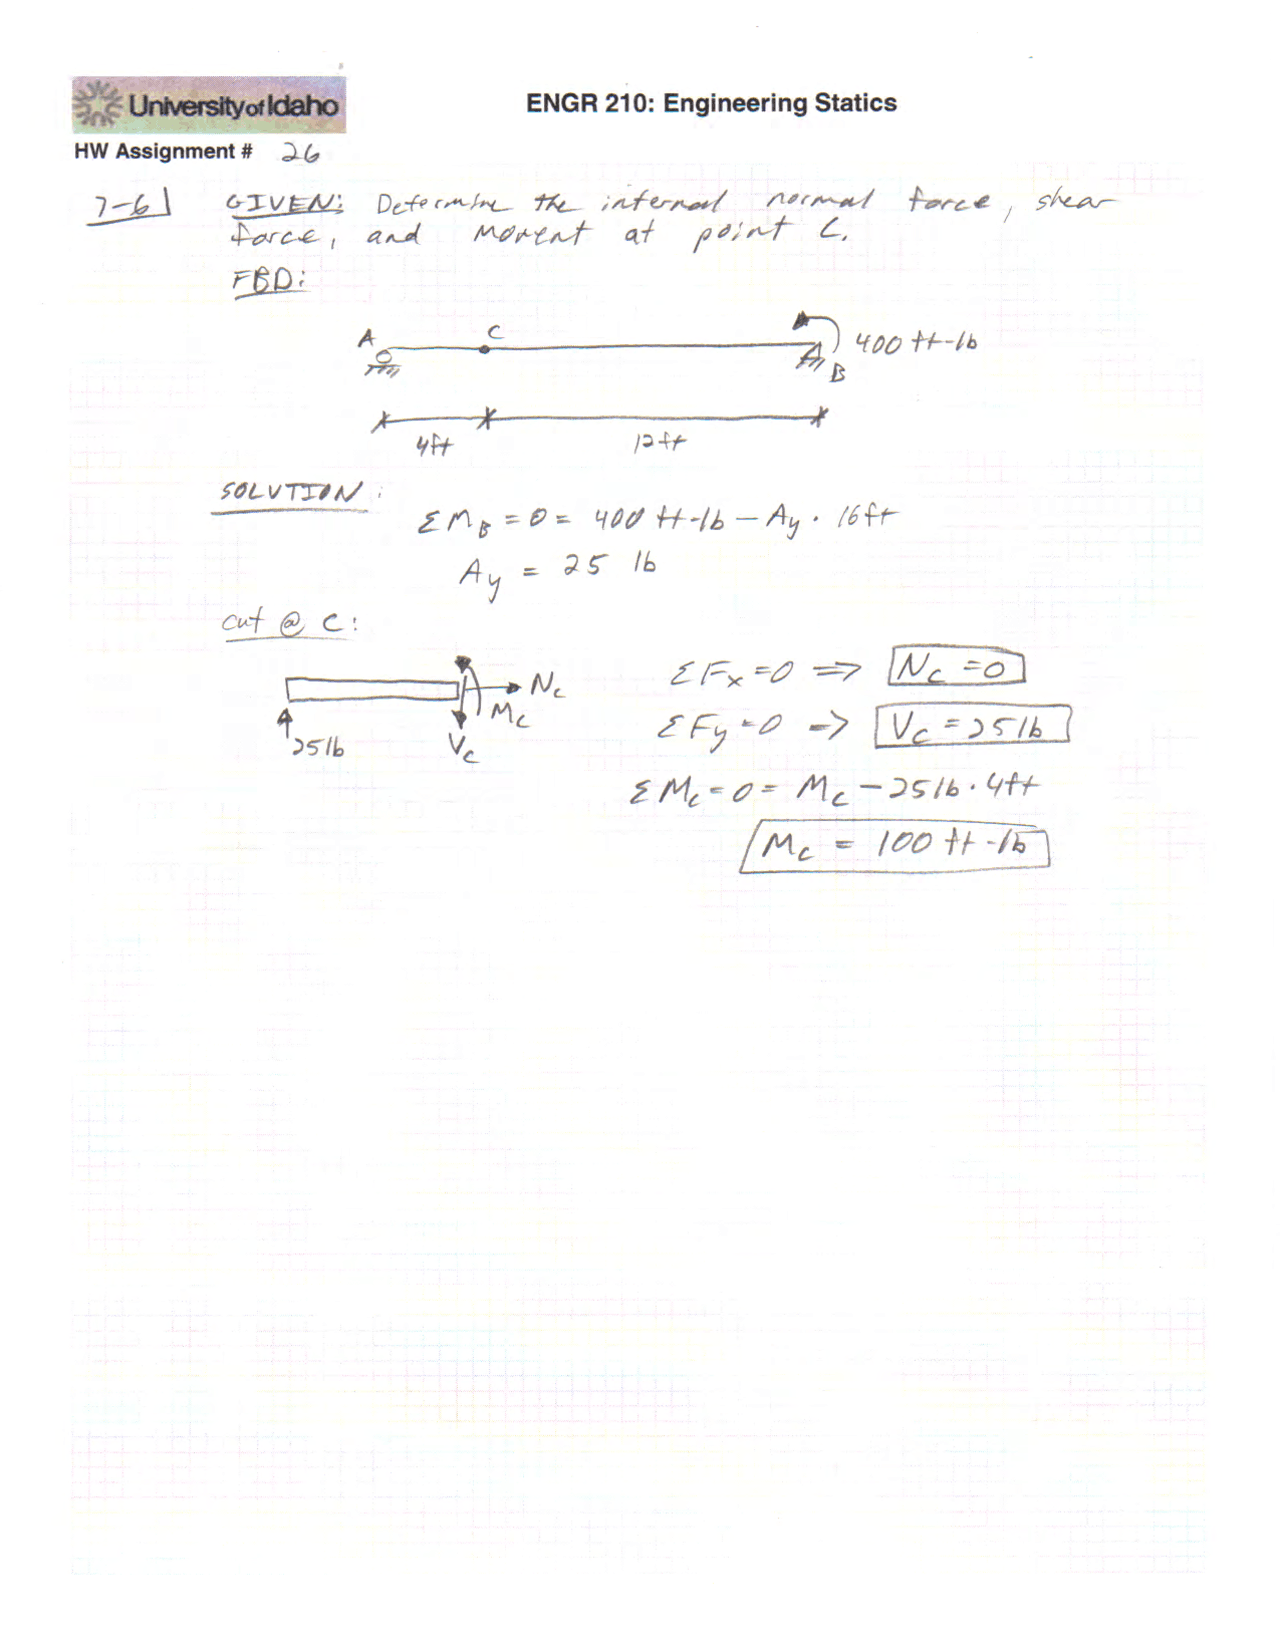 University of Idaho
ENGR 210: Engineering Statics
HW Assignment # 26
7-6 GIVEN: Determine the internal normal force, shear
force, and moment at point C.
FBD:
A C 400 ft-lb
B
4ft 12ft
SOLUTION:
ΣM_B = 0 = 400 ft-lb – Ay · 16ft
Ay = 25 lb
cut @ C:
ΣFx = 0 => Nc = 0
Nc
Mc
25lb Vc
ΣFy = 0 => Vc = 25lb
ΣMc = 0 = Mc – 25lb · 4ft
Mc = 100 ft-lb